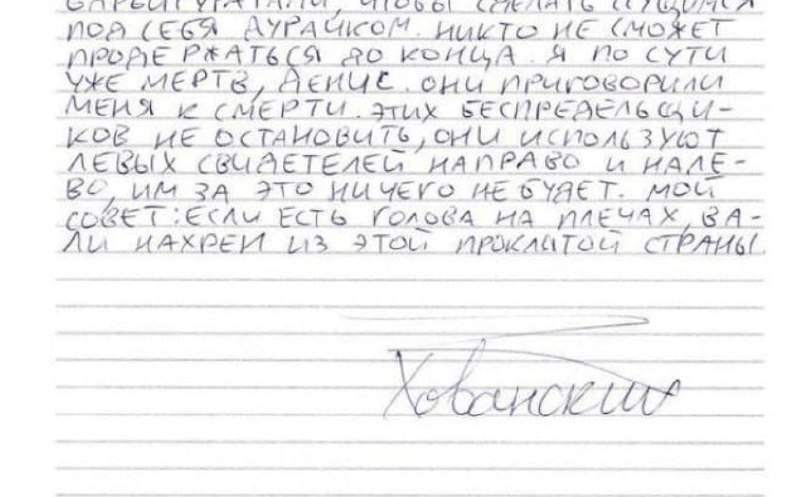 БАРБИТУРАТАМИ, ЧТОБЫ СДЕЛАТЬ ССУЩИМСЯ
ПОД СЕБЯ ДУРАЧКОМ. НИКТО НЕ СМОЖЕТ
ПРОДЕРЖАТЬСЯ ДО КОНЦА. Я ПО СУТИ
УЖЕ МЕРТВ, ДЕНИС. ОНИ ПРИГОВОРИЛИ
МЕНЯ К СМЕРТИ. ЭТИХ БЕСПРЕДЕЛЬЩИ-
КОВ НЕ ОСТАНОВИТЬ, ОНИ ИСПОЛЬЗУЮТ
ЛЕВЫХ СВИДЕТЕЛЕЙ НАПРАВО И НАЛЕ-
ВО, ИМ ЗА ЭТО НИЧЕГО НЕ БУДЕТ. МОЙ
СОВЕТ: ЕСЛИ ЕСТЬ ГОЛОВА НА ПЛЕЧАХ, ВА-
ЛИ НАХРЕН ИЗ ЭТОЙ ПРОКЛЯТОЙ СТРАНЫ.
Хованский